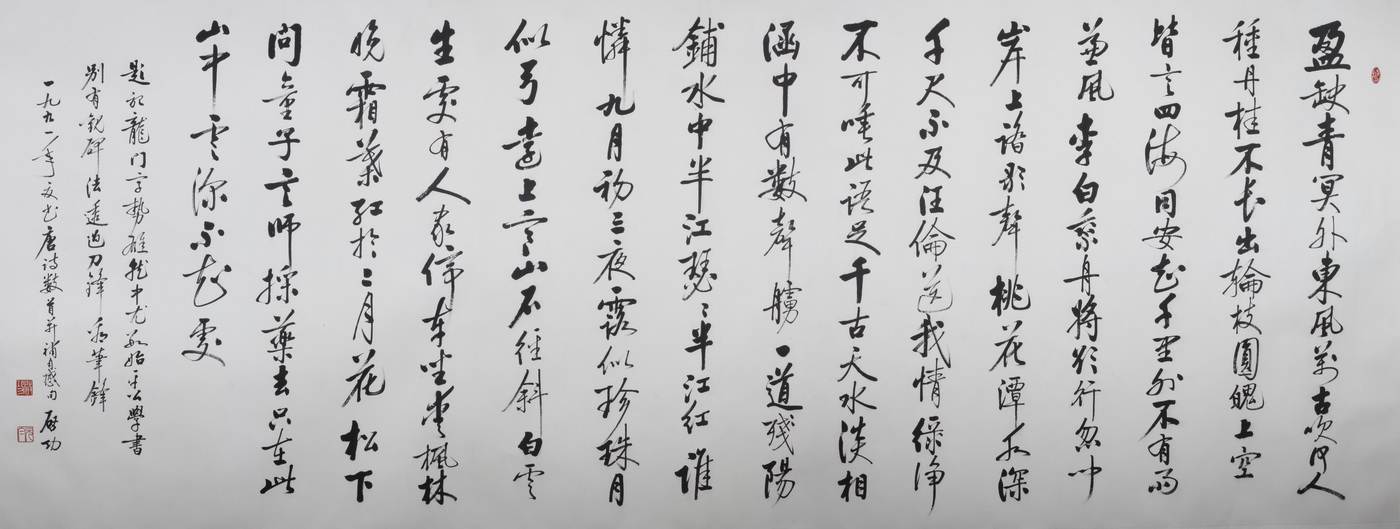 盈缺青冥外東風萬古吹何人
種丹桂不長出輪枝圓魄上空
皆言四海同安知千里外不有雨
兼風李白乘舟將欲行忽聞
岸上踏歌聲桃花潭水深
千尺不及汪倫送我情緑净
不可唾此語足千古天水淡相
涵中有數聲艣一道殘陽
鋪水中半江瑟〻半江紅誰
憐九月初三夜露似珍珠月
似弓遠上寒山石徑斜白雲
生處有人家停車坐愛楓林
晚霜葉紅於二月花松下
問童子言師採藥去只在此
山中雲深不知處
題記龍門字勢雄就中尤數始平公學書
別有觀碑法透過刀鋒看筆鋒
一九九一年夏書唐詩數首并補自感句 啓功